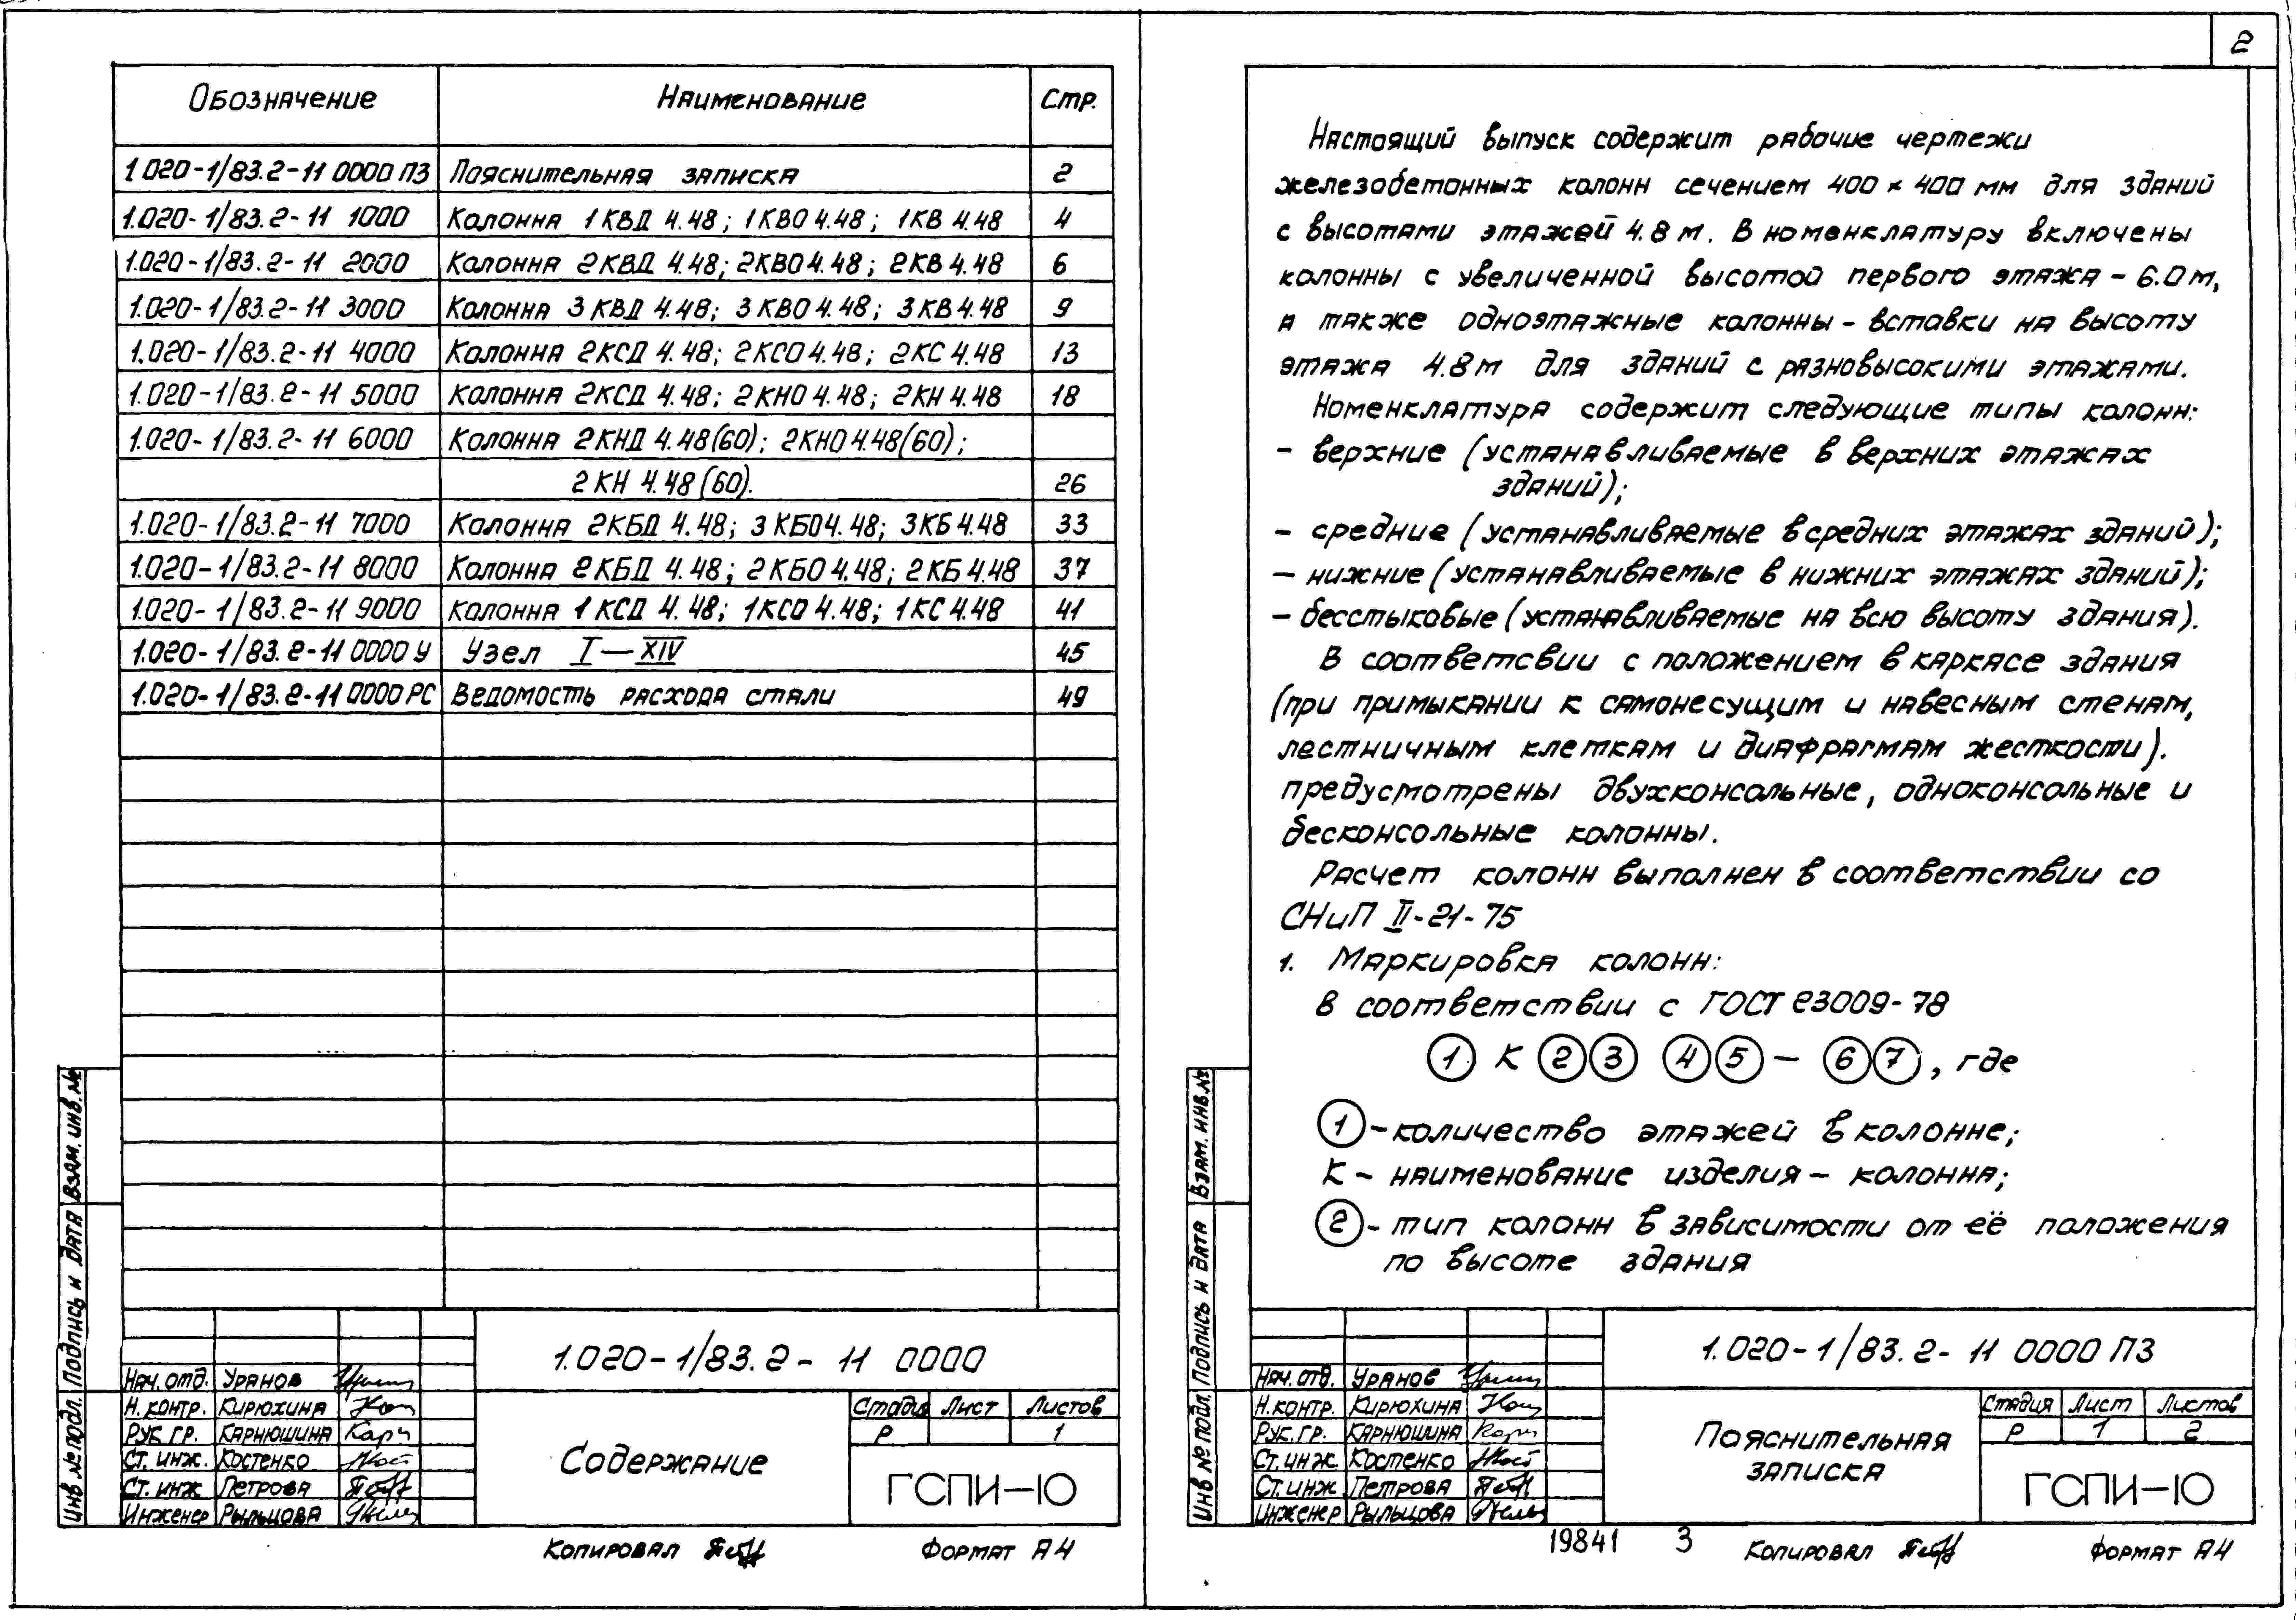 Обозначение Наименование Стр.
1.020-1/83.2-11 0000 ПЗ Пояснительная записка 2
1.020-1/83.2-11 1000 Колонна 1КВД 4.48; 1КВО 4.48; 1КВ 4.48 4
1.020-1/83.2-11 2000 Колонна 2КВД 4.48; 2КВО 4.48; 2КВ 4.48 6
1.020-1/83.2-11 3000 Колонна 3КВД 4.48; 3КВО 4.48; 3КВ 4.48 9
1.020-1/83.2-11 4000 Колонна 2КСД 4.48; 2КСО 4.48; 2КС 4.48 13
1.020-1/83.2-11 5000 Колонна 2КСД 4.48; 2КНО 4.48; 2КН 4.48 18
1.020-1/83.2-11 6000 Колонна 2КНД 4.48(60); 2КНО 4.48(60);
2КН 4.48(60). 26
1.020-1/83.2-11 7000 Колонна 2КБД 4.48; 3КБО 4.48; 3КБ 4.48 33
1.020-1/83.2-11 8000 Колонна 2КБД 4.48; 2КБО 4.48; 2КБ 4.48 37
1.020-1/83.2-11 9000 Колонна 1КСД 4.48; 1КСО 4.48; 1КС 4.48 41
1.020-1/83.2-11 0000 У Узел I—XIV 45
1.020-1/83.2-11 0000 РС Ведомость расхода стали 49
Инв № подл. Подпись и дата Взам. инв. №
1.020-1/83.2-11 0000
Нач. отд. Уранов
Н. контр. Кирюхина
Рук гр. Карнюшина
Ст. инж. Костенко
Ст. инж Петрова
Инженер Рыльцова
Содержание
Стадия Лист Листов
Р 1
ГСПИ-10
Копировал Формат А4
2
Настоящий выпуск содержит рабочие чертежи
железобетонных колонн сечением 400 × 400 мм для зданий
с высотами этажей 4.8 м. В номенклатуру включены
колонны с увеличенной высотой первого этажа - 6.0 м,
а также одноэтажные колонны - вставки на высоту
этажа 4.8 м для зданий с разновысокими этажами.
Номенклатура содержит следующие типы колонн:
- верхние (устанавливаемые в верхних этажах
зданий);
- средние (устанавливаемые в средних этажах зданий);
- нижние (устанавливаемые в нижних этажах зданий);
- бесстыковые (устанавливаемые на всю высоту здания).
В соответсвии с положением в каркасе здания
(при примыкании к самонесущим и навесным стенам,
лестничным клеткам и диафрагмам жесткости).
предусмотрены двухконсольные, одноконсольные и
бесконсольные колонны.
Расчет колонн выполнен в соответствии со
СНиП II-21-75
1. Маркировка колонн:
в соответствии с ГОСТ 23009-78
① К ② ③ ④ ⑤ — ⑥ ⑦, где
① - количество этажей в колонне;
К - наименование изделия - колонна;
② - тип колонн в зависимости от её положения
по высоте здания
Инв № подл. Подпись и дата Взам. инв. №
1.020-1/83.2-11 0000 ПЗ
Нач. отд. Уранов
Н. контр. Кирюхина
Рук. гр. Карнюшина
Ст. инж. Костенко
Ст. инж Петрова
Инженер Рыльцова
Пояснительная
записка
Стадия Лист Листов
Р 1 2
ГСПИ-10
19841 3 Копировал Формат А4